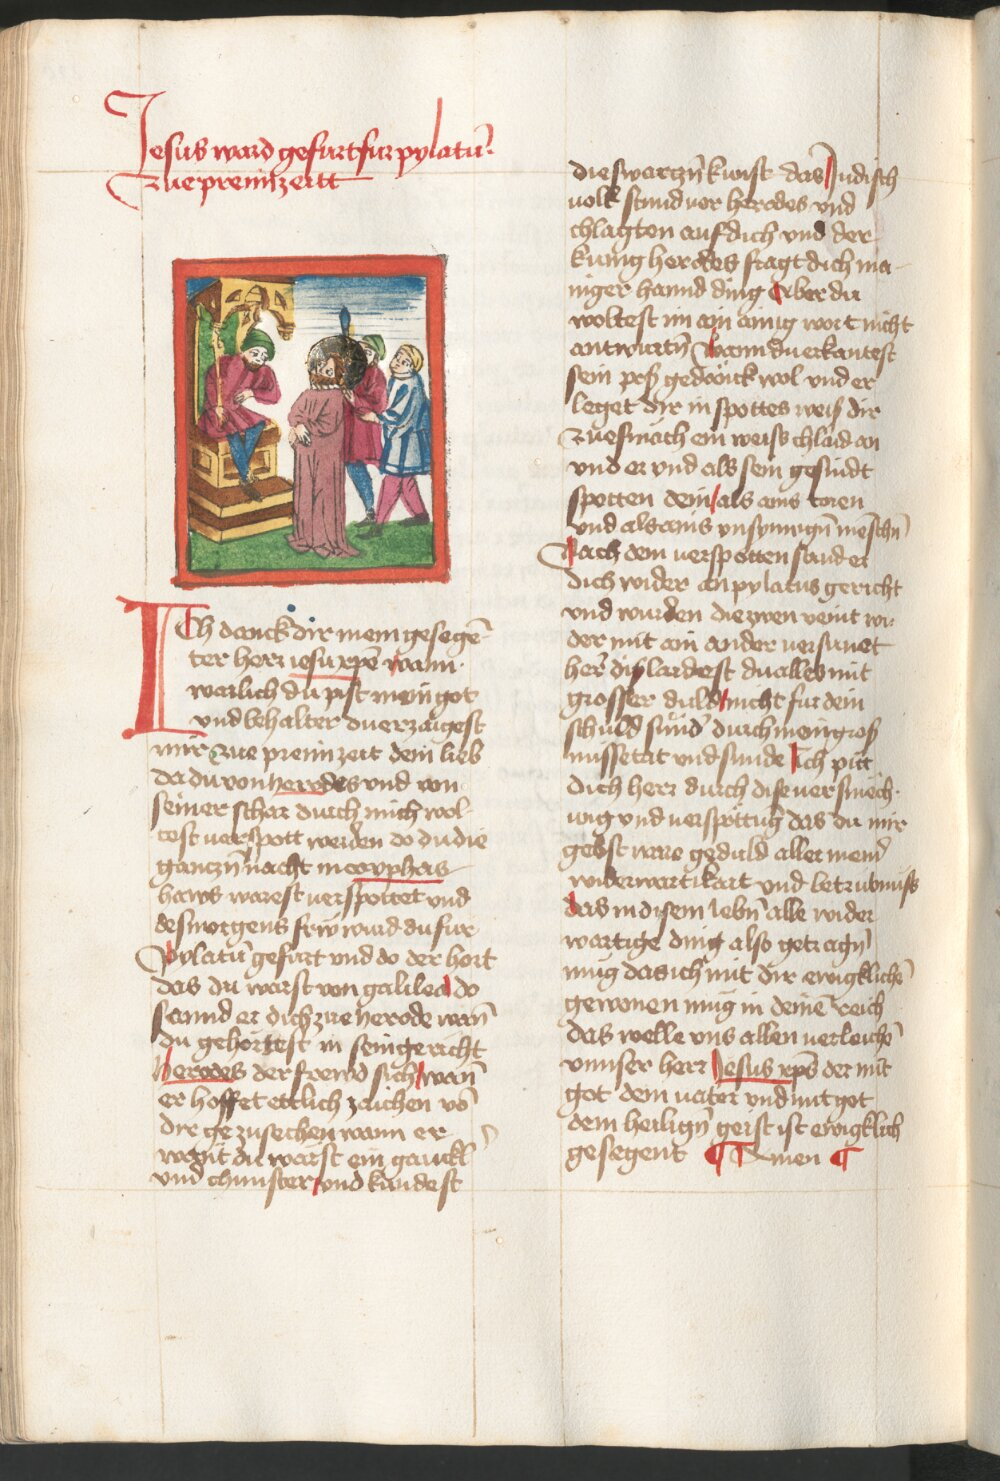 Jesus ward gefürt fur pylatu͞
zue preimzeitt
Ich danck dir mein gesege͞
ter herr iesu xpe͞ wann
warlich du pist mein got
vnd behalter du erzaigest
mir zue preimzeit dein lieb
da du von herodes vnd von
seiner schar durch mich wol-
test verspott werden do du die
gantzn͞ nacht in cayphas
haws warest verspottet vnd
des morgens frw ward du fur
Pylatu͞ gefurt vnd do der hort
das du warst von galilea do
sannd er dich zue herode wan͞
du gehörtest in sein gericht
Herodes der frewd sich wan͞
er hoffet ettlich zaichen vo͞
dir ge zusechen wann er
wont du warst ein gauckl
vnd chunster vnd kundest
die swartzn͞ kunst das Judisch
volk stund vor herodes vnd
chlagten auf dich vnd der
kunig herodes fragt dich ma-
niger hannd ding Aber du
woltest im ain ainig wort nicht
antwurtn͞ wann du erkantest
sein pös gedänck wol vnd er
leget dir in spottes weis dir
zue smäch ein weiss chlaid an
vnd er vnd als sein gesindt
spotten dein als ains toren
vnd als ains vnsynnign͞ me͞schn͞
Nach dem verspotten sand er
dich wider an pylatus gericht
vnd wurden die zwen veint wi-
der mit ain ander versünet
her͞ dis laidest du alles mit
grosser duld nicht fur dein
schuld sund͞ durch mein gros
missetat vnd sunde Ich pitt
dich herr durch dise versmech-
ung vnd verspottung͞ das du mir
gebst ware geduld aller meine͞
widerwartikait vnd betrübniss
das in disem lebn͞ alle wider
wartige ding also getragn͞
mug das ich mit dir ewigkliche͞
gewonen mug in deine͞ reich
das welle vns allen verleiche͞
vnnser herr Jesus xps͞ der mit
got dem vater vnd mit got
dem heilign͞ geist ist ewigklich
gesegent Amen